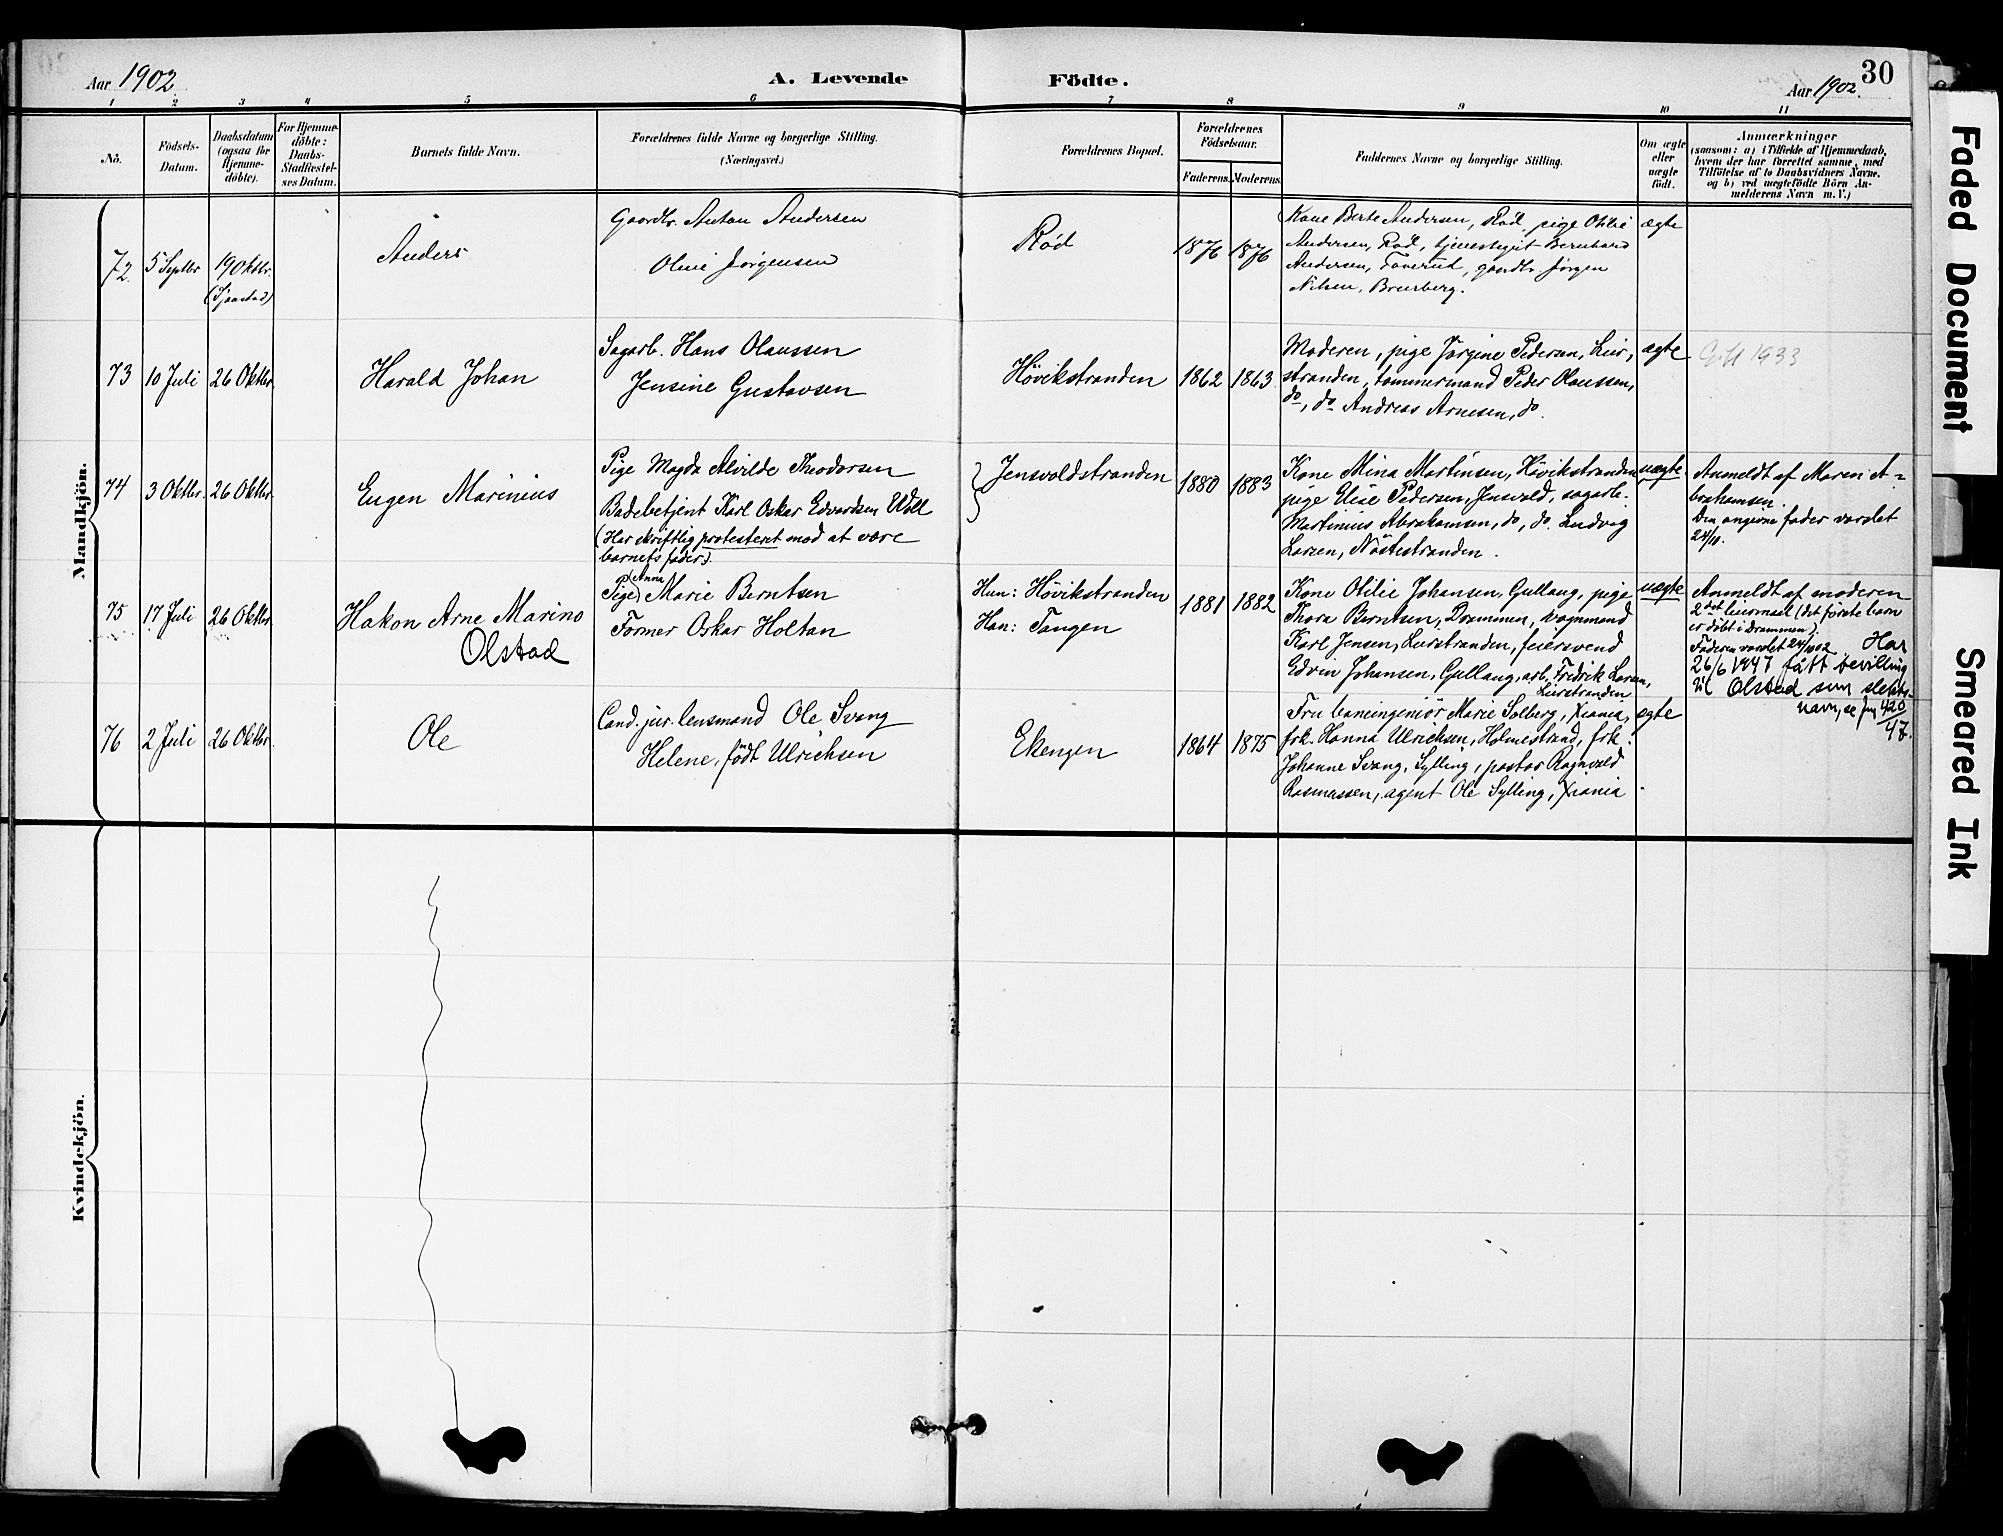 Aar 1902
A. Levende Födte.
30
Aar 1902.
1 2 3 4 5 6 7 8 9 10 11
No.
Födsels-
Datum.
Daabsdatum
(ogsaa för
Hjemme-
döbte).
For Hjemme-
döbte:
Daabs-
Stadfæstel-
ses Datum.
Barnets fulde Navn.
Forældrenes fulde Navne og borgerlige Stilling.
(Næringsvei.)
Forældrenes Bopæl.
Forældrenes
Födselsaar.
Faderens. Moderens.
Faddernes Navne og borgerlige Stilling.
Om ægte
eller
uægte
födt.
Anmærkninger
(saasom: a) i Tilfælde af Hjemmedaab,
hvem der har forrettet samme, med
Tilföielse af to Daabsvidners Navne,
og b) ved uægtefödte Börn An-
melderens Navn m. V.)
Mandkjön.
72
5 Septbr
19 Oktbr.
(Sjaastad)
Anders
Gaardbr. Anton Andersen
Oline Jörgensen
Röd
1876
1876
Kone Berte Andersen, Röd, pige Otilia
Andersen, Röd, tjenestegut Bernhard
Andersen, Toverud, gaardbr. Jörgen
Nilsen, Breierberg.
ægte
73
10 Juli
26 Oktbr.
Harald Johan
Sagarb. Hans Olaussen
Jensine Gustavsen
Hövikstranden
1862
1863
Moderen, pige Jörgine Pedersen, Lier-
stranden, tømmermand Peder Olaussen,
do, do Andreas Arnesen, do.
ægte
1933
74
3 Oktbr.
26 Oktbr.
Eugen Marinius
Pige Magda Alvilde Theodorsen
Badebetjent Karl Oskar Edvardsen Woll
(Har skriftlig protesteret mod at være
barnets fader).
Jensvoldstranden
1880
1883
Kone Mina Martinsen, Hövikstranden
pige Elise Pedersen, Jensvold, sagarb.
Martinius Abrahamsen, do, do. Ludvig
Larsen, Nöstestranden.
uægte
Anmeldt af Maren A-
brahamsen.
Den angivne fader varslet
24/10.
75
17 Juli
26 Oktbr
Hakon Arne Marino
Olstad
Pige (Anna) Marie Berntsen
Former Oskar Holtan
Hun: Hövikstranden
Han: Tangen
1881
1882
Kone Otilie Johansen, Gullaug, pige
Thora Berntsen, Drammen, vognmand
Karl Jensen, Lierstranden, feiersvend
Edvin Johansen, Gullaug, arb. Fredrik Larsen,
Lierstranden
uægte
Anmeldt af moderen
2det leiermaal (det förste barn
er döbt i Drammen).
Faderen varslet 24/10 02. Har
26/6 1947 fått bevilling
til Olstad som slekts-
navn, se jnr 420
47.
76
2 Juli
26 Oktbr.
Ole
Cand. jur. lensmand Ole Svang
Helene, födt Ulrichsen
Ekengen
1864
1875
Fru baneingeniör Marie Solberg, Xiania,
frk. Hanna Ulrichsen, Holmestrand, frk.
Johanne Svang, Sylling, pastor Ragnvald
Rasmussen, agent Ole Sylling, Xiania.
ægte
Kvindekjön.
Faded Document
Smeared Ink